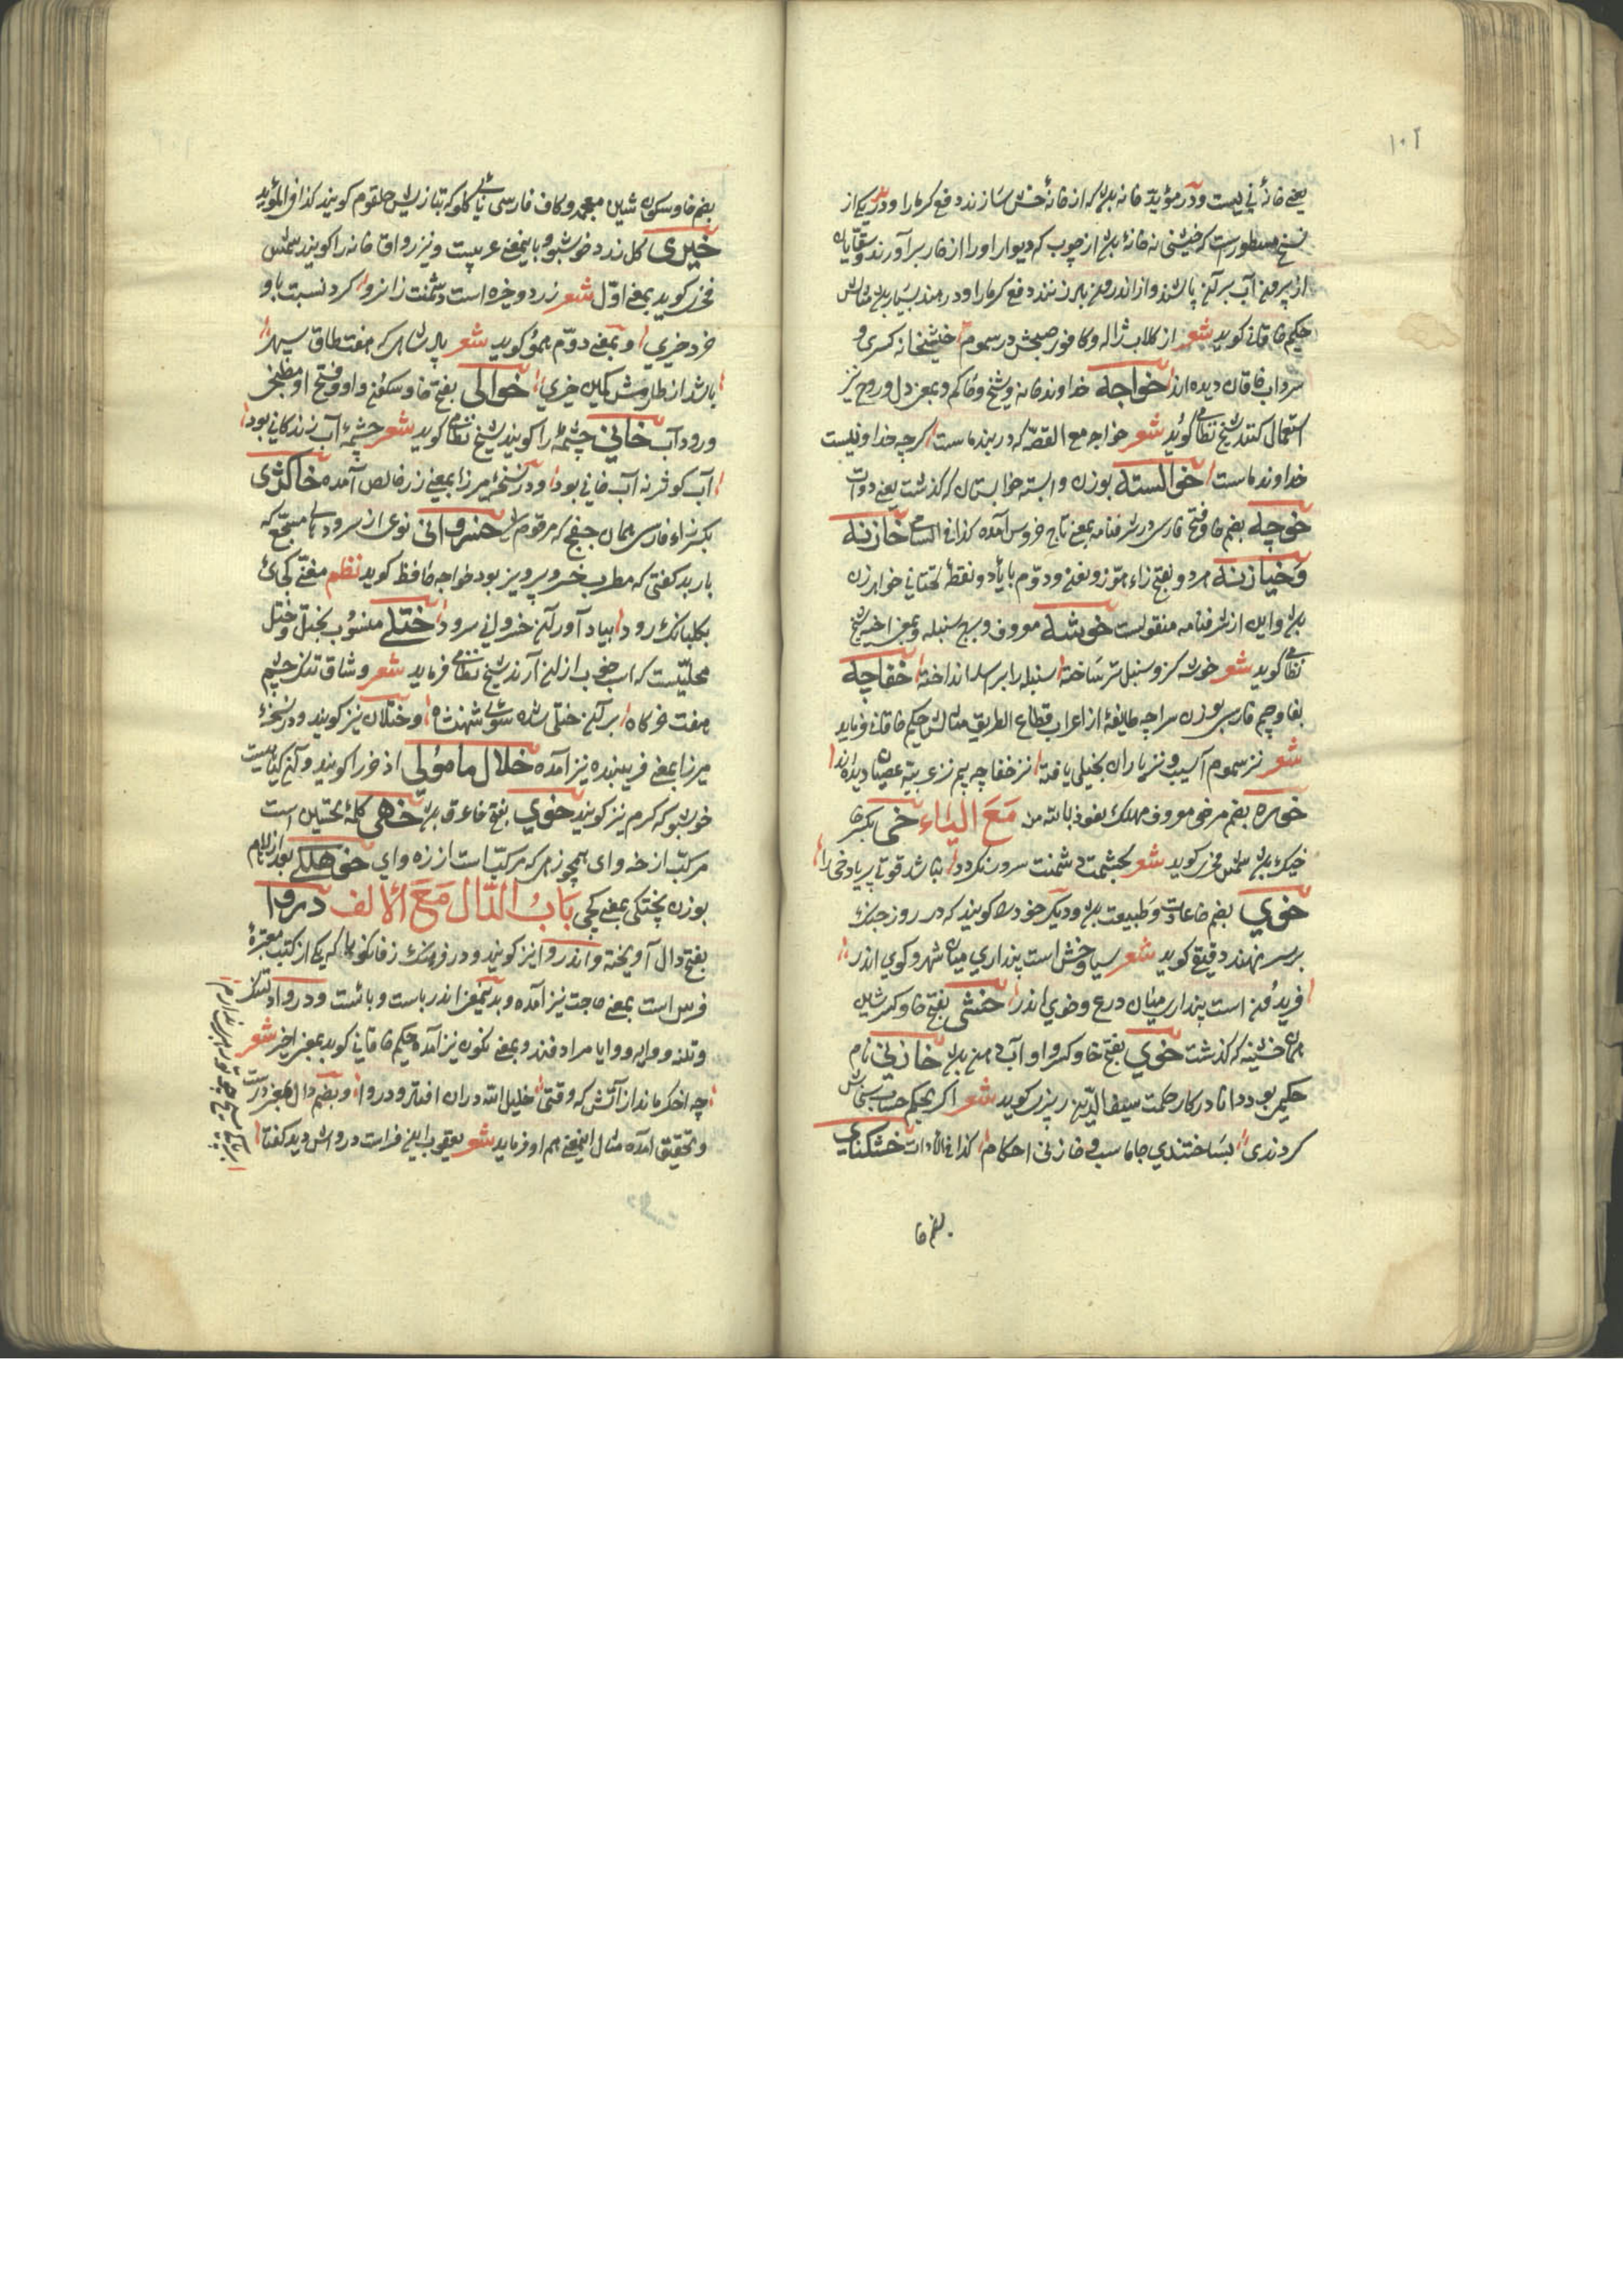 ۱۰۲
یعنی خانهٔ نی نیست و در مؤید خانه بدن که از خانهٔ خش سازند دفع کرما را و در یکی از
نسخ مسطورست که خیشی نه خانهٔ بدن از چوب که دیوار او را از خار برآورند و سقایان
از بیرون آب بر آن پاشند و از اندرون باد زنند دفع کرما را و در هند بسیار
حکیم خاقانی کوید شعر از کلاب ژاله و کافور صبحش در سموم خیشخانه کسری و
سرداب خاقان دیده اند خواجه خداوند خانه و شیخ و حاکم و بمعنی دل و روح نیز
استعمال کنند شیخ نظامی کوید شعر خواجه مع القصه که در بند ماست کرچه خدا نیست
خداوند ماست خوالسته بوزن وابسته خوابستان که کذشت یعنی دوات
خوچه بضم خا و فتح فارسی در شرفنامه بمعنی تاج خروس آمده کذا فی خازنه
وخیازنه هر دو بفتح زاء هوّز و نون و دوم با یاء دو نقطهٔ تحتانی خواهر زن
بدن و این از شرفنامه منقولست خوشه معروف و برج سنبله و بمعنی اخیر شیخ
نظامی کوید شعر خوشه کزو سنبل تر ساخته سنبله را بر اسد انداخته خفاچه
بفا و جیم فارسی بوزن سراچه طایفهٔ از اعراب قطاع الطریق مثالش حکیم خاقانی فرماید
شعر نز سموم آسیب و نز باران بخیلی یافته نز خفاچه بیم نز غزیه عصیان دیده اند
خوره بضم مرضی معروف مهلک نعوذ بالله من مَعَ الیاء خی بکسر خا
خیک بدن مثالش فخری کوید شعر بجشمت دشمنت سر و نکردد نباشد قوتا پر باد خی را
خوي بضم خا عادت و طبیعت بدن و دیکر خود را کویند که در روز جنک
بر سر نهند دقیقی کوید شعر سیاوخش است پنداري میان شهر و کوی اندر
فریدُون است پنداری میان درع و خوي اندر خشی بفتح خا و کسر شین
همان خشینه که کذشت خوي بفتح خا و کسر واو آب دهن بدن خازنی نام
حکیمی بود دانا در کار حکمت سیف الدین کوید شعر اکر بحکم حساب
کردندی بساختندی جاماسب و خازنی احکام کذا فی الادات خشکنای
بضم خا
بضم خا و سکون شین معجمه و کاف فارسی نای کلو که بتازیش حلقوم کویند کذا فی المؤید
خیری کل زرد خوشبو و باینمعنی عربیست و نیز رواق خانه را کویند مثالش
فخری کوید بمعنی اوّل شعر زرد و خیره است دشمنت زانرو کرد نسبت باو
خرد خیری و بمعنی دوّم همو کوید شعر بادشاهی که هفت طاق سپهر
باشد از طارمش کمین خیری خوالی بفتح خا و سکون واو و فتح او مطبخی
و رود آب خانی چشمه را کویند شیخ نظامی کوید شعر چشمهٔ آب زندکانی بود
آب کوثر نه آب خانی بود و در نسخهٔ میرزا بمعنی زر خالص آمده خاکژی
بکسر زاء فارسی همان خفچ که مرقوم شد خسروانی نوعی از سرودهای مسجع که
باربد کفتی که مطرب خسرو پرویز بود خواجه حافظ کوید نظم مغنی کجائی
بکلبانک رود بیاد آور آن خسروانی سرود ختلی منسُوب بختل و ختل
محلیست که اسب خوب از آن آرند شیخ نظامی فرماید شعر وشاق تنک چشم
هفت خرکاه بر آن ختلی شده سوی شهنشاه و ختلان نیز کویند و در نسخهٔ
میرزا بمعنی فریبنده نیز آمده خلال مامونی اذخر را کویند و آن کیاهیست
خوشبو که کرم نیز کویند خوي بفتح خا عرق بدن خهی کلمهٔ تحسین است
مرکب از خه و ای همچو زهی که مرکب است از زه و ای خوهلکی بعد از لام
بوزن پختکی بمعنی کجی بَابُ الدَّال مَعَ الالف دروا
بفتح دال آویخته و اندروا نیز کویند و در فرهنک زفانکویا که یکی از کتب معتبرهٔ
فرس است بمعنی حاجت نیز آمده و بدینمعنی اندرباست و بائست و درواد
و وایه و وایا مرادفند و بمعنی نکون نیز آمده حکیم خاقانی کوید بمعنی اخیر شعر
چه اخکر ماند از آتش که وقتی خلیل الله در آن افتاد دروا و بضم دال بمعنی درست
و تحقیق آمده مثال اینمعنی هم او فرماید شعر یعقوب این فراست درواش دید کفتا